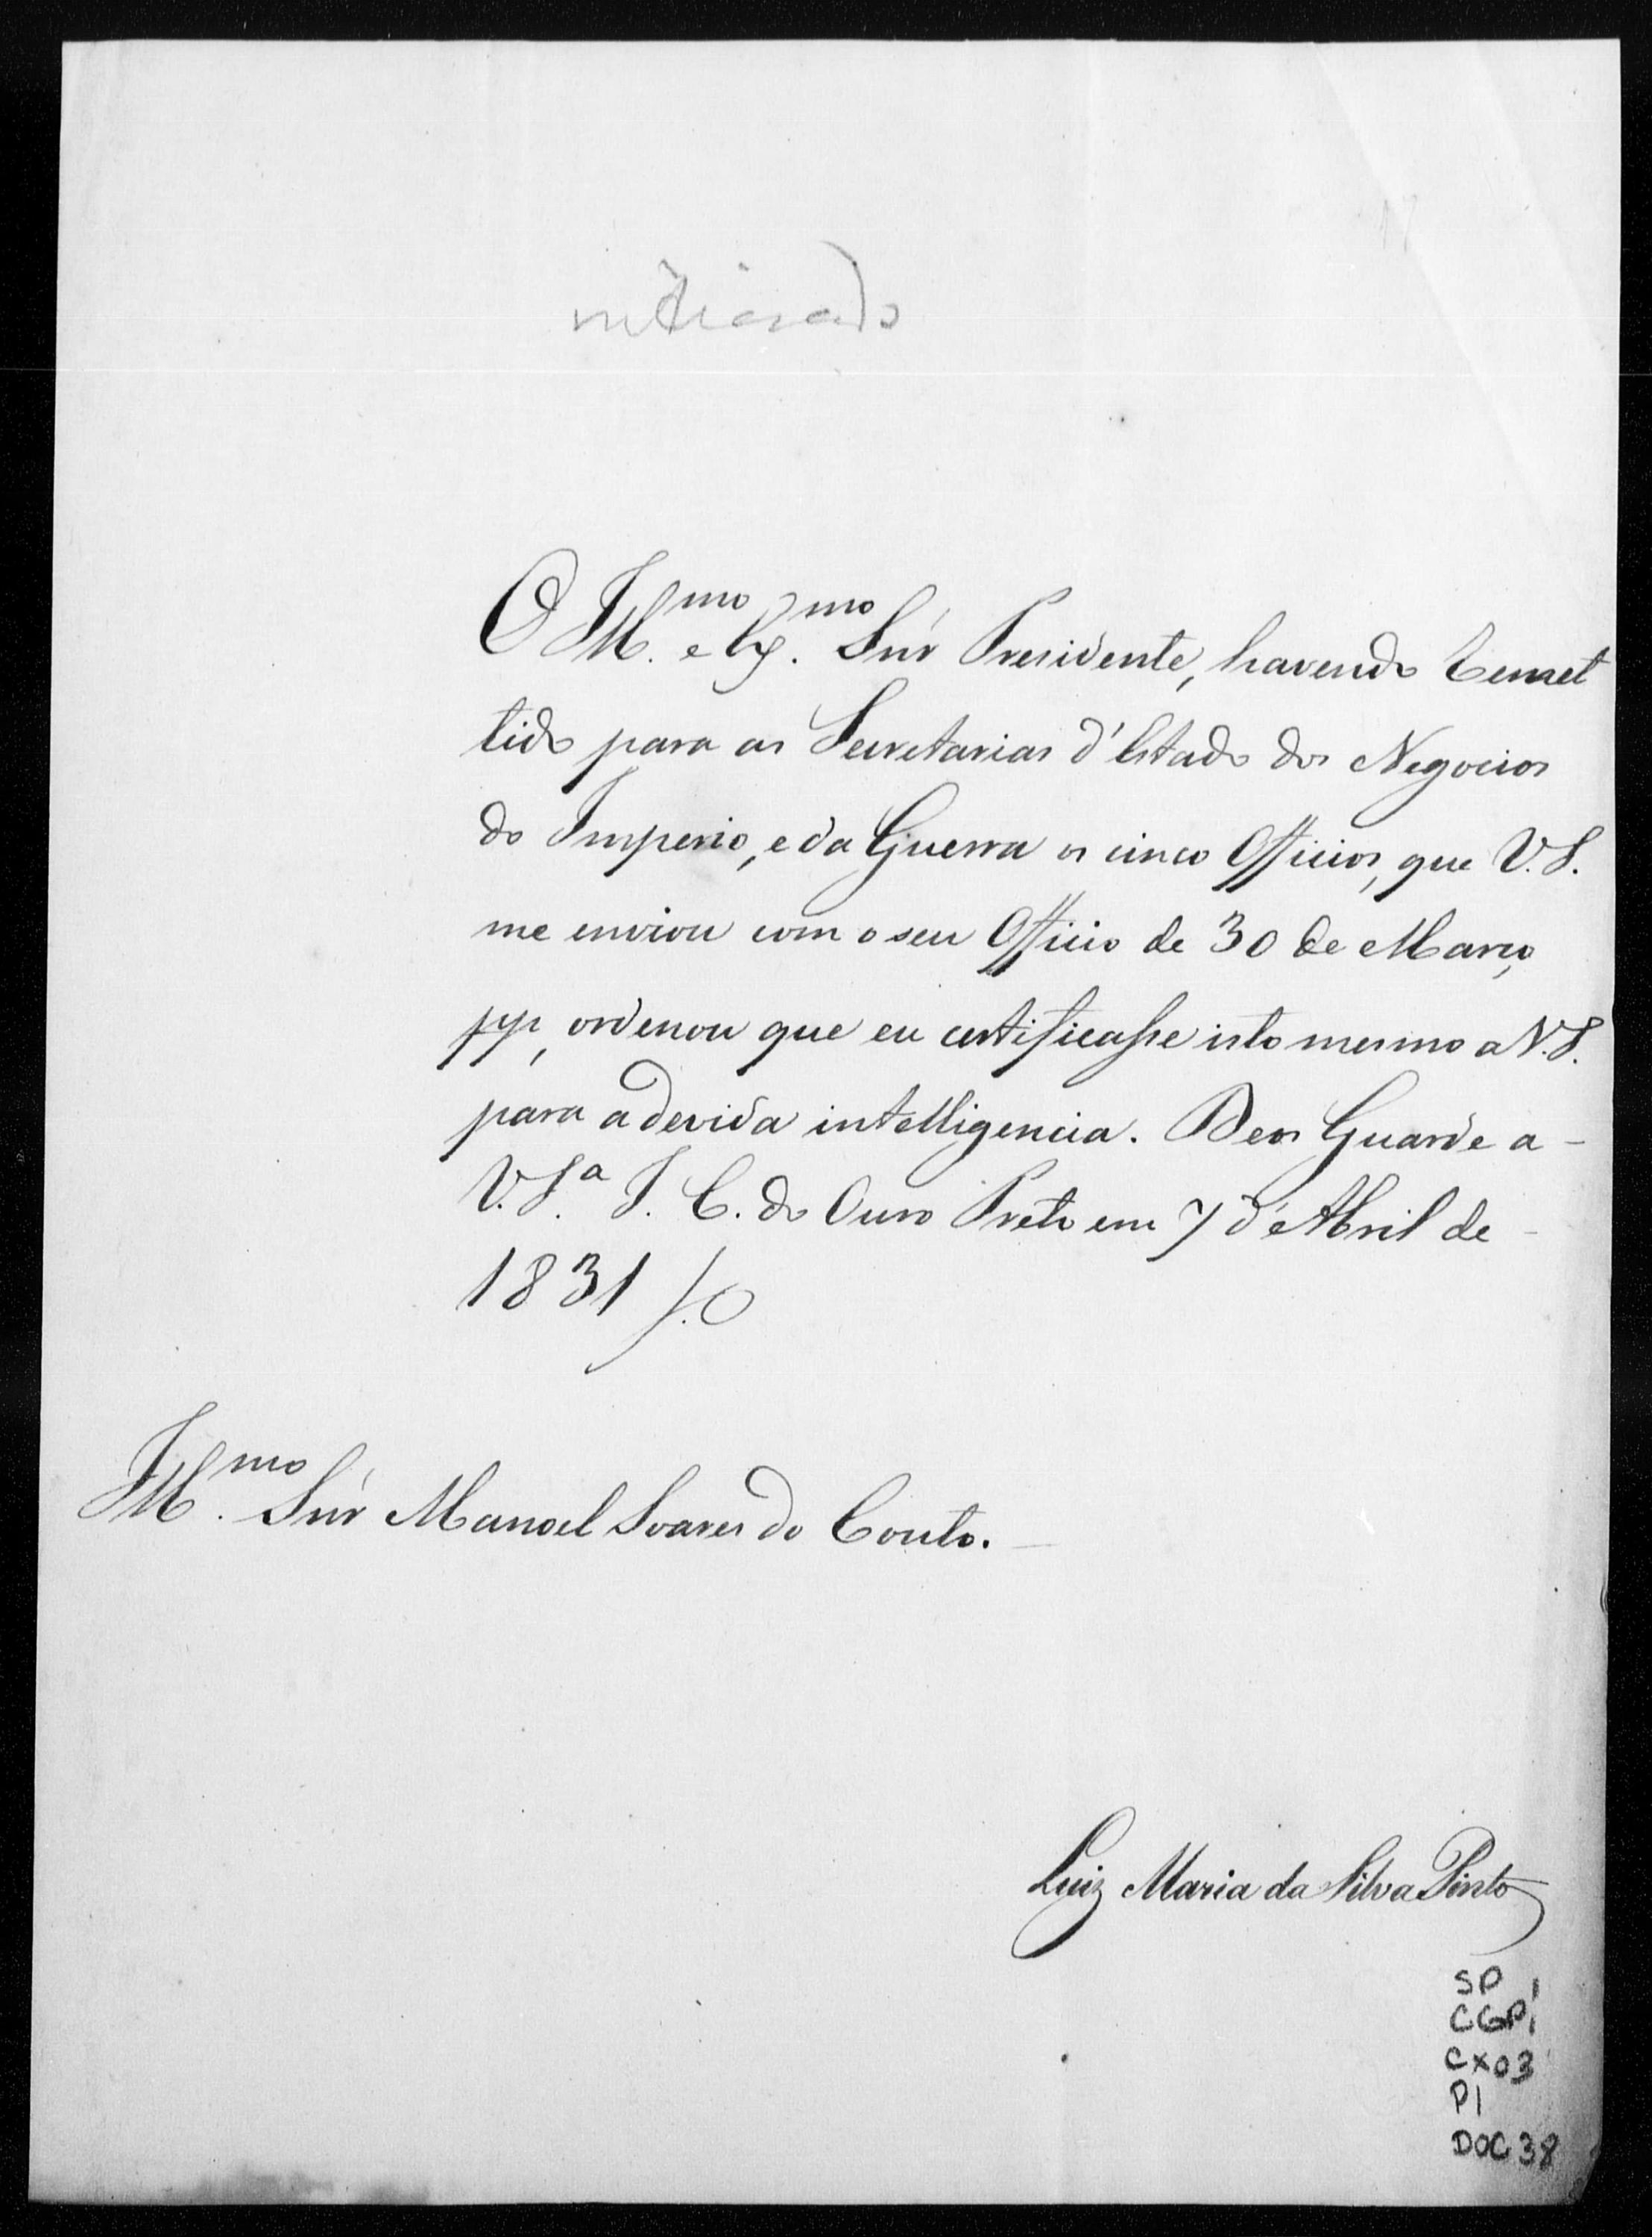 O Ill.mo e Ex.mo Snr Presidente, havendo remet
tido para as Secretarias d'Estado dos Negocios
do Imperio, e da Guerra os cinco Officios, que V.S.
me enviou com o seu Officio de 30 de Março
pp, ordenou que eu certificasse isto mesmo a V.S.
para a devida intelligencia. Deos Guarde a -
V.S.a I. C. do Ouro Preto em 7 d'Abril de -
1831
Ill.mo Snr Manoel Soares do Couto.
Luiz Maria da Silva Pinto
SP
CGP1
CX03
P1
DOC 38